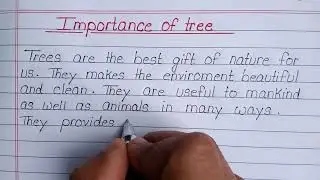 Importance of tree
Trees are the best gift of nature for
us. They makes the enviroment beautiful
and clean. They are useful to mankind
as well as animals in many ways.
They provides